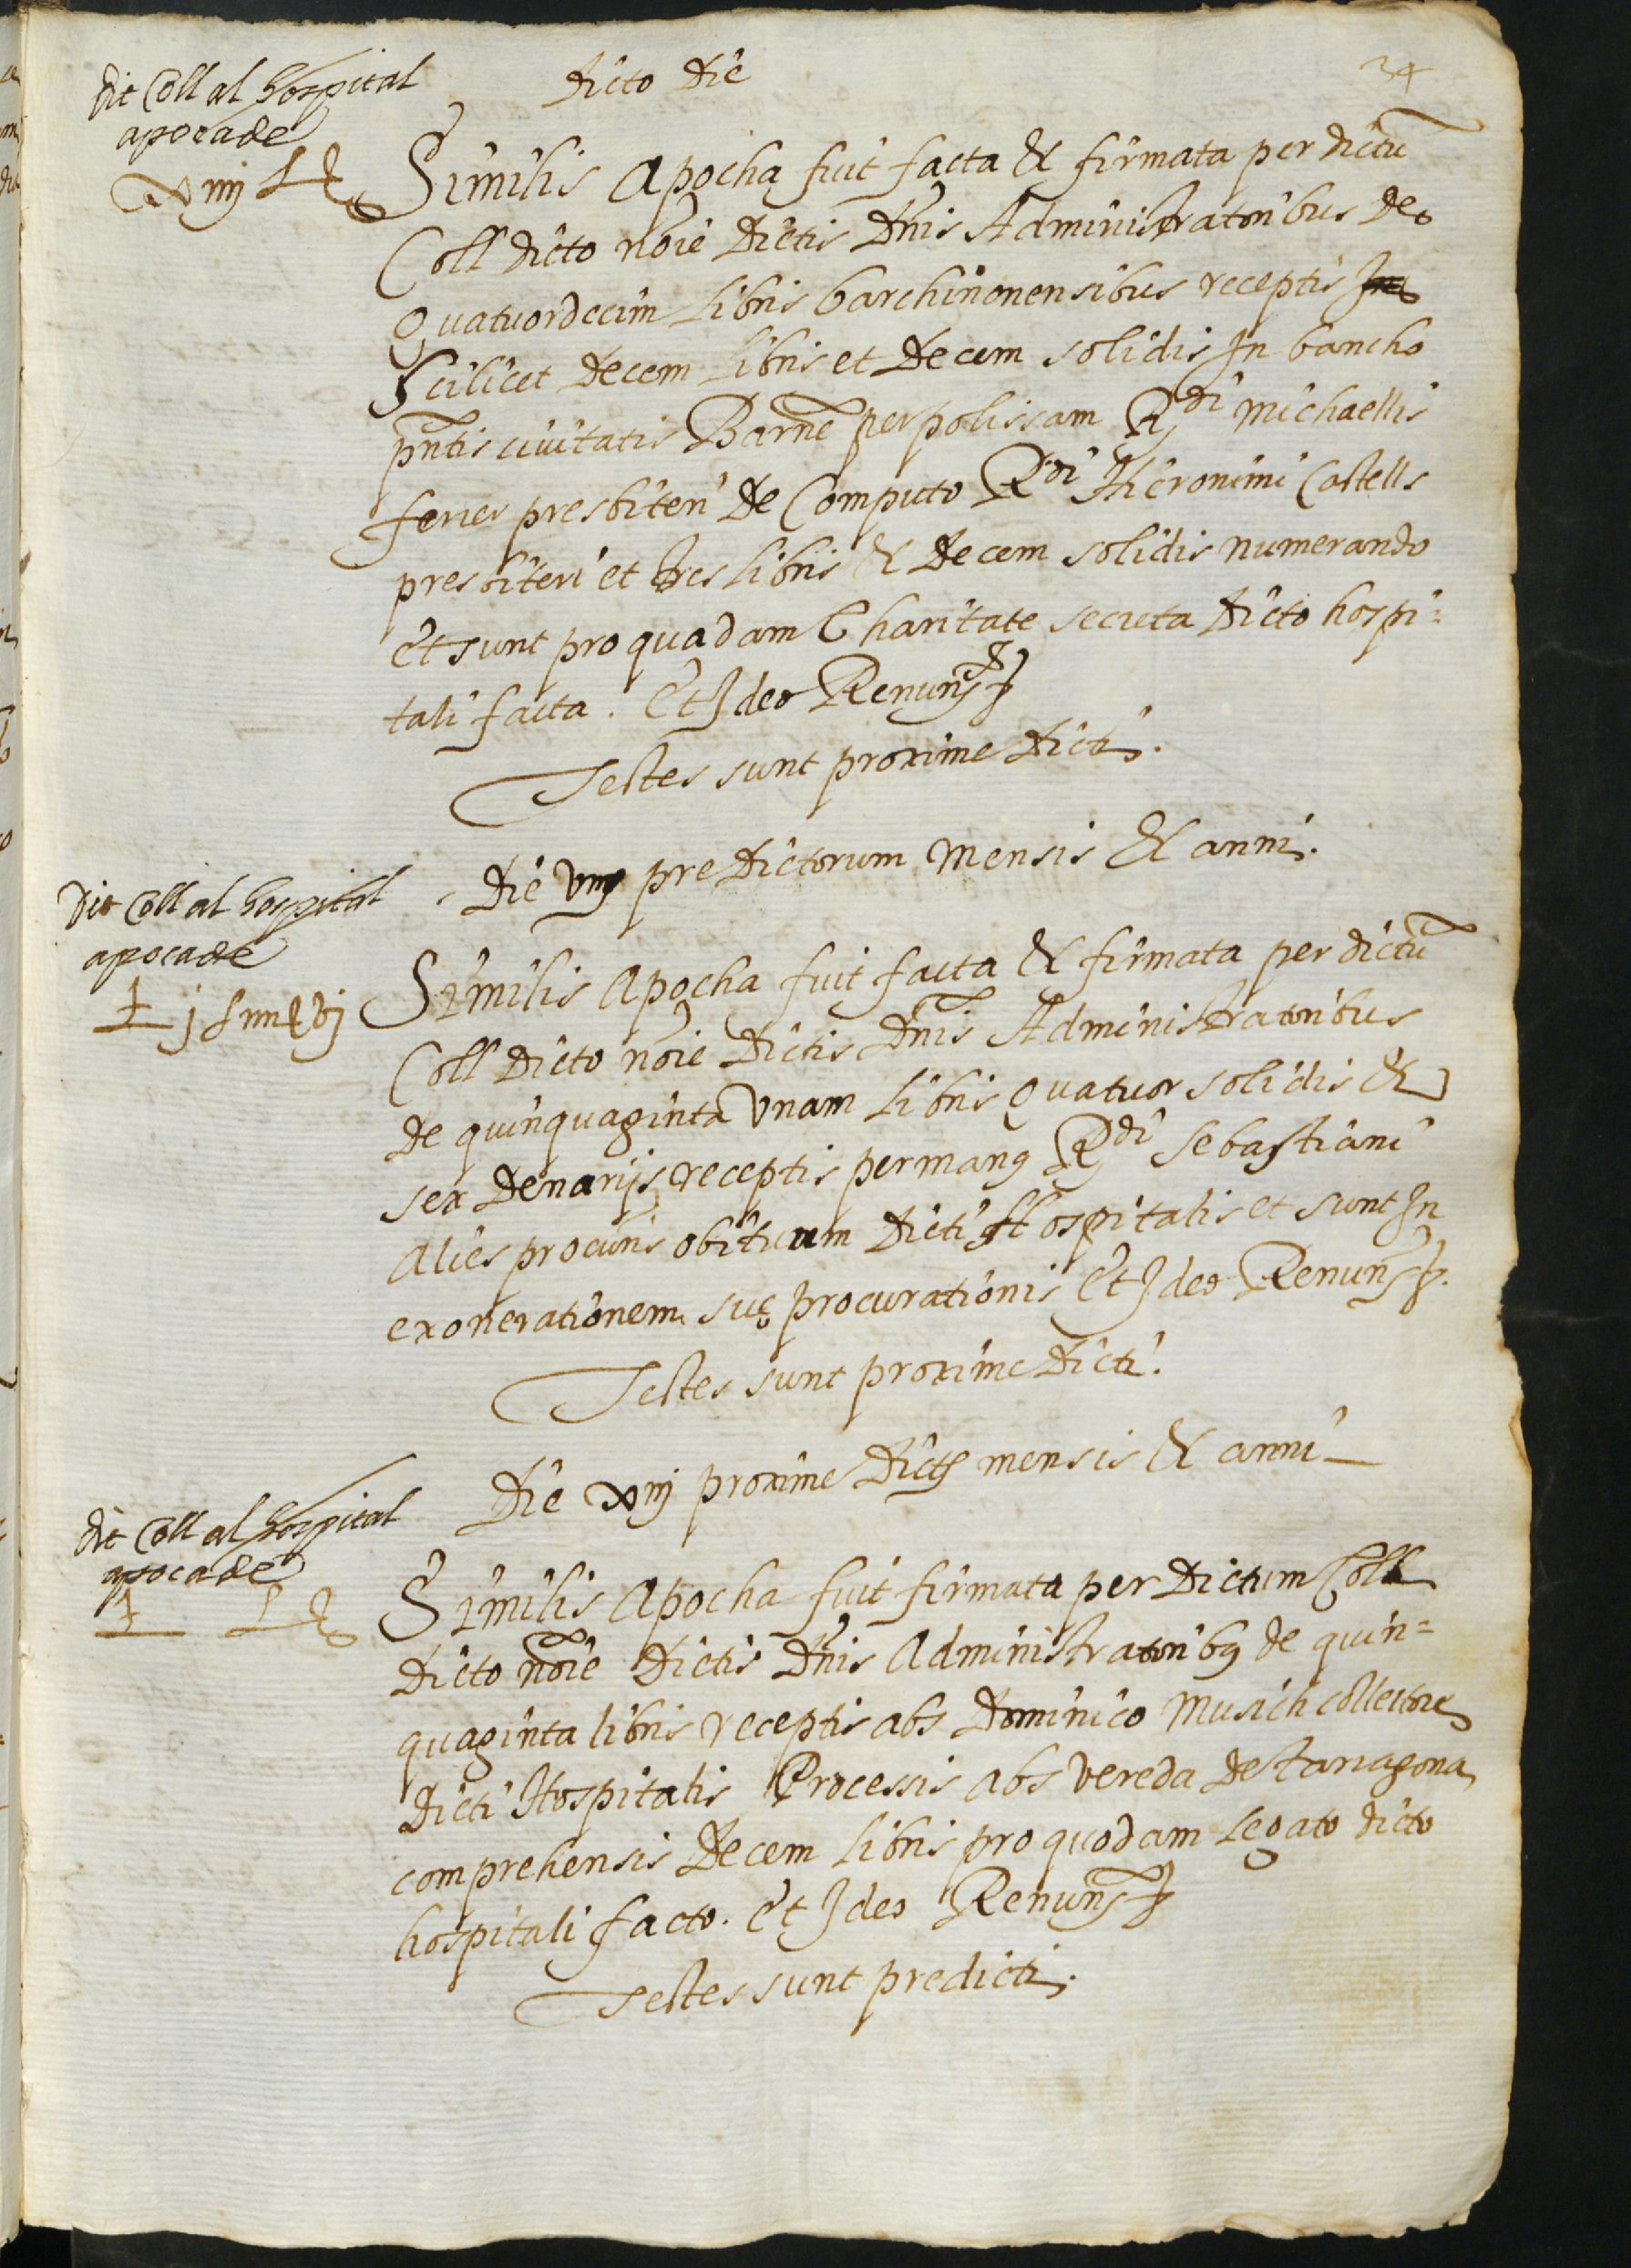 34
dicto die
dit Coll al hospital
apoca de
xiiij L
Similis Apocha fuit facta & firmata per dictū
Coll dicto noīe dictis dn̄is Administratoribus de
Quatuordecim Libris barchinonensibus receptis
Scilicet decem Libris et decem solidis In bancho
pn̄tis civitatis Barn̄e per polissam Rdi michaellis
ferrer presbiteri de Computo Rdi Hieronimi Castells
presbiteri et tres libris & decem solidis numerando
et sunt pro quadam Charitate secreta dicto hospi=
tali facta. Et Ideo Renuns
Testes sunt proxime dicti.
die viiij predictorum mensis & anni.
dit Coll al hospital
apoca de
Lj s iiij d vj
Similis Apocha fuit facta & firmata per dictū
Coll dicto noīe dictis dn̄is Administratoribus
de quinquaginta Vnam Libris Quatuor solidis &
sex denarijs receptis per manꝰ Rdi sebastiani
Alies procuris obituum dicti Hospitalis et sunt In
exonerationem suę procurationis Et Ideo Renuns
Testes sunt proxime dicti.
die xiij proxime dicts mensis & anni
dit Coll al hospital
apoca de
L L
Similis Apocha fuit firmata per dictum Coll
dicto noīe dictis dn̄is Administratoribꝰ de quin=
quaginta libris receptis abs dominico Musich collectore
dicti Hospitalis Processis abs vereda de Tarragona
comprehensis decem libris pro quodam Legato dicto
hospitali facto. Et Ideo Renuns
Testes sunt predicti.